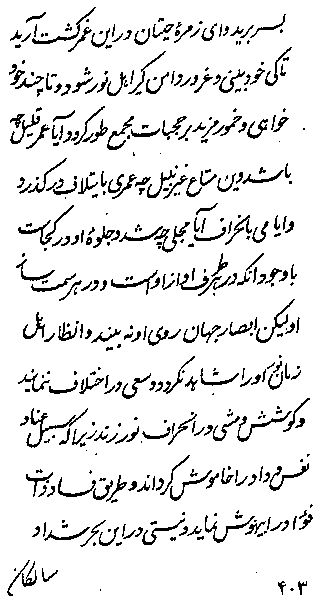 بسر برید و ای زمرهٔ حیتان در این غمر گشت آرید
تا کی خود بینی و غرور دامن گیر اهل نور شود و تا چند خود
خواهی و خمور مزید بر حجبات مجمع طور گردد آیا عمر قلیل چه
باشد و این متاع غیر نبیل چه عمری با یتلاف در گذرد
و ایامی بانحراف آیا مجلی چه شد و جلوهٔ او در کجاست
با وجود آنکه در هر طرف آواز اوست و در هر سمت ساز
او لیکن ابصار جهان روی او نه بیند و انظار اهل
زمان او را مشاهد نکرد و سعی در اختلاف نمایند
و کوشش و مشی در انحراف نورزند زیرا که سبیل عناد
نفس و داد را خاموش گرداند و طریق فساد ذات
فؤاد را بیهوش نماید و نیستی در این بحر شداد
سالکان
۴۰۳